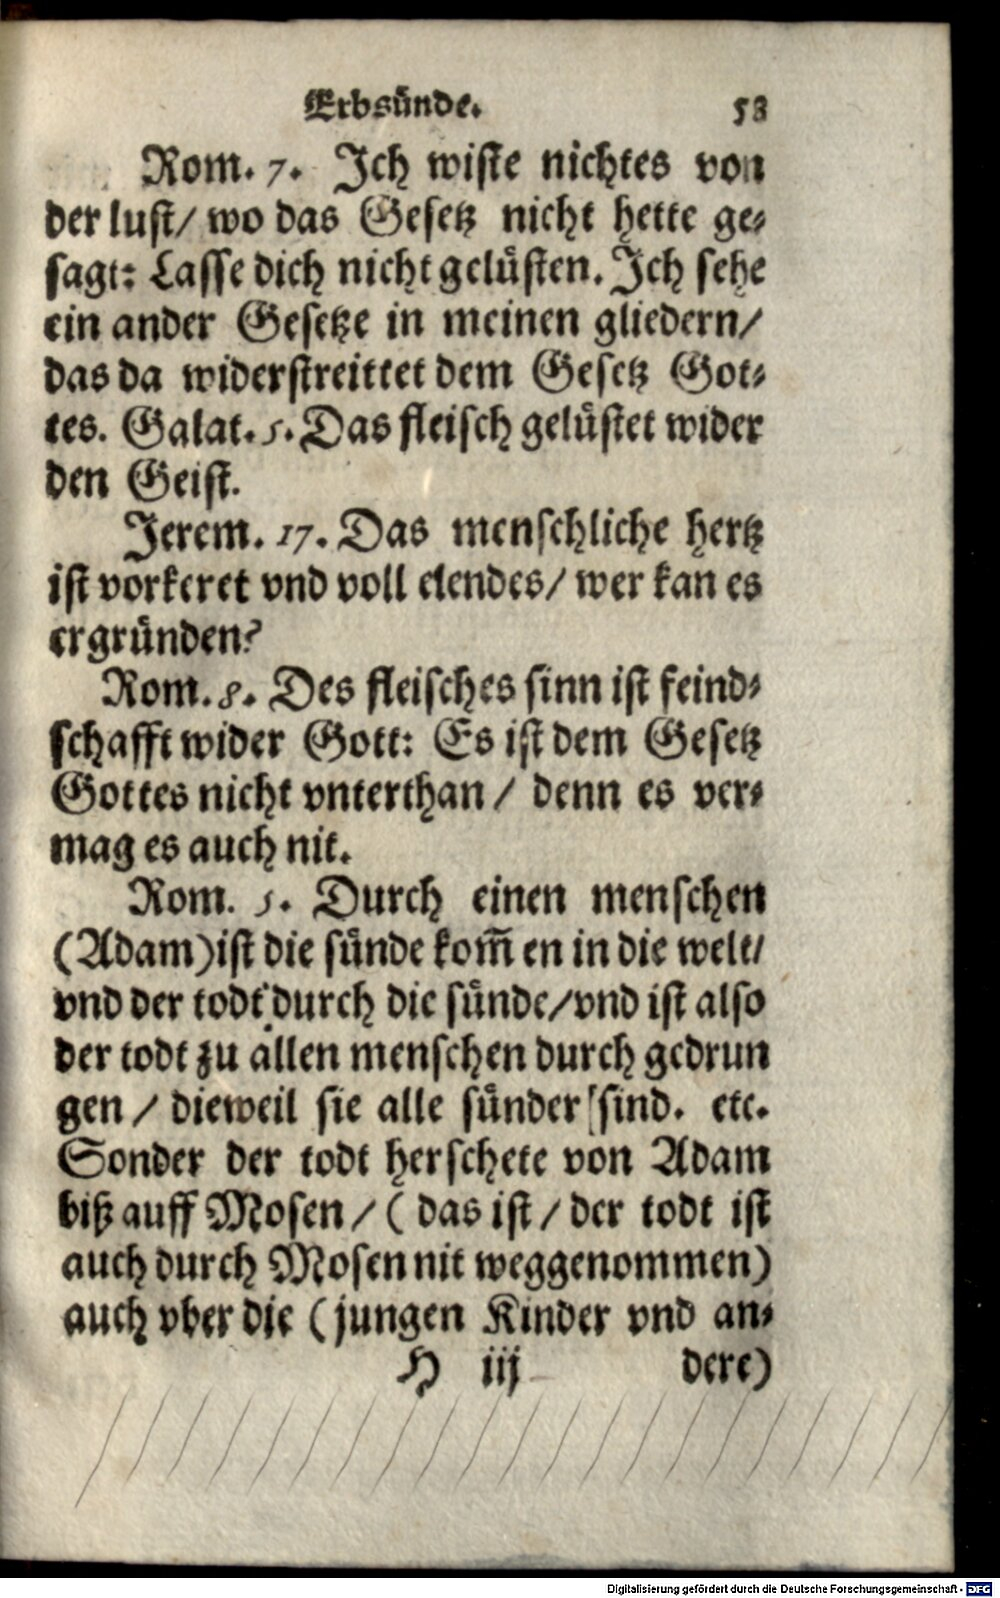 Erbsünde. 58
Rom. 7. Ich wiste nichtes von
der lust/ wo das Gesetz nicht hette ge⸗
sagt: Lasse dich nicht gelüsten. Ich sehe
ein ander Gesetze in meinen gliedern/
das da widerstreittet dem Gesetz Got⸗
tes. Galat. 5. Das fleisch gelüstet wider
den Geist.
Jerem. 17. Das menschliche hertz
ist vorkeret vnd voll elendes/ wer kan es
ergründen?
Rom. 8. Des fleisches sinn ist feind⸗
schafft wider Gott: Es ist dem Gesetz
Gottes nicht vnterthan / denn es ver⸗
mag es auch nit.
Rom. 5. Durch einen menschen
(Adam) ist die sünde kom̃en in die welt/
vnd der todt durch die sünde/ vnd ist also
der todt zu allen menschen durch gedrun
gen / dieweil sie alle sünder sind. etc.
Sonder der todt herschete von Adam
biß auff Mosen / ( das ist / der todt ist
auch durch Mosen nit weggenommen)
auch vber die (jungen Kinder vnd an⸗
H iij dere)
Digitalisierung gefördert durch die Deutsche Forschungsgemeinschaft - DFG